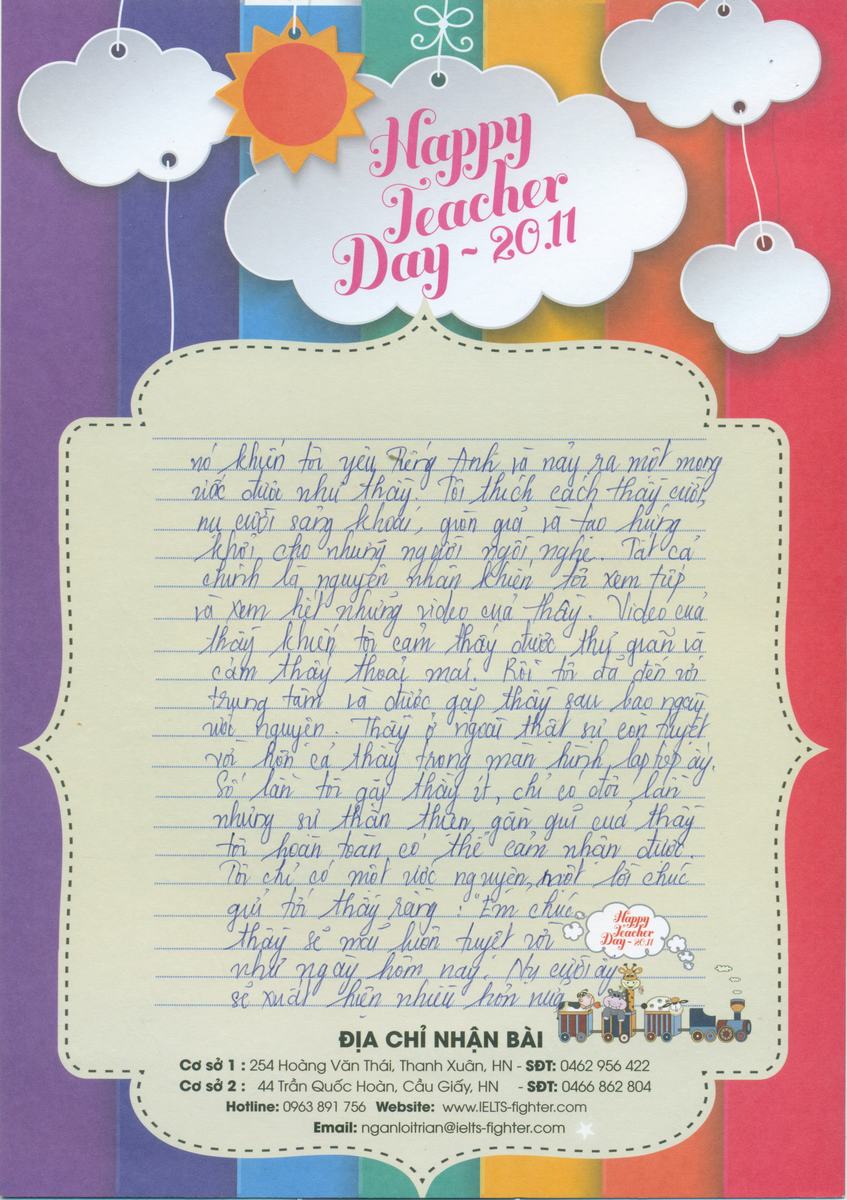 Happy
Teacher
Day ~ 20.11
nó khiến tôi yêu Tiếng Anh và nảy ra một mong
ước được như thầy. Tôi thích cách thầy cười,
nụ cười sảng khoái, giòn giã và tạo hứng
khởi cho những người ngồi nghe. Tất cả
chính là nguyên nhân khiến tôi xem tiếp
và xem hết những video của thầy. Video của
thầy khiến tôi cảm thấy được thư giãn và
cảm thấy thoải mái. Rồi tôi đã đến với
trung tâm và được gặp thầy sau bao ngày
ước nguyện. Thầy ở ngoài thật sự còn tuyệt
vời hơn cả thầy trong màn hình laptop ấy.
Số lần tôi gặp thầy ít, chỉ có đôi lần
nhưng sự thân thiện, gần gũi của thầy
tôi hoàn toàn có thể cảm nhận được.
Tôi chỉ có một ước nguyện, một lời chúc
gửi tới thầy rằng : "Em chúc
thầy sẽ mãi luôn tuyệt vời
như ngày hôm nay. Nụ cười ấy
sẽ xuất hiện nhiều hơn nữa
Happy
Teacher
Day ~ 20.11
ĐỊA CHỈ NHẬN BÀI
Cơ sở 1 : 254 Hoàng Văn Thái, Thanh Xuân, HN - SĐT: 0462 956 422
Cơ sở 2 : 44 Trần Quốc Hoàn, Cầu Giấy, HN - SĐT: 0466 862 804
Hotline: 0963 891 756 Website: www.IELTS-fighter.com
Email: nganloitrian@ielts-fighter.com